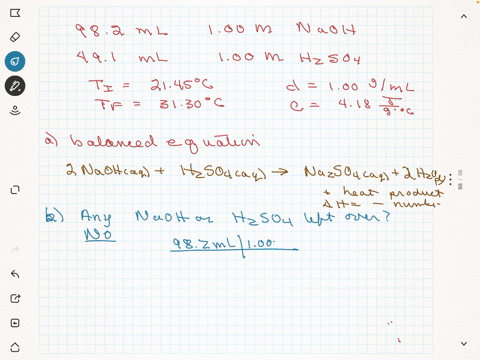 98.2 mL 1.00 M NaOH
49.1 mL 1.00 M H2SO4
TI = 21.45°C d = 1.00 g/mL
TF = 31.30°C c = 4.18 J/g·°C
a) balanced equation
2 NaOH(aq) + H2SO4(aq) → Na2SO4(aq) + 2 H2O(l)
+ heat product
ΔH = - number
b) Any NaOH or H2SO4 left over?
No 98.2 mL | 1.00